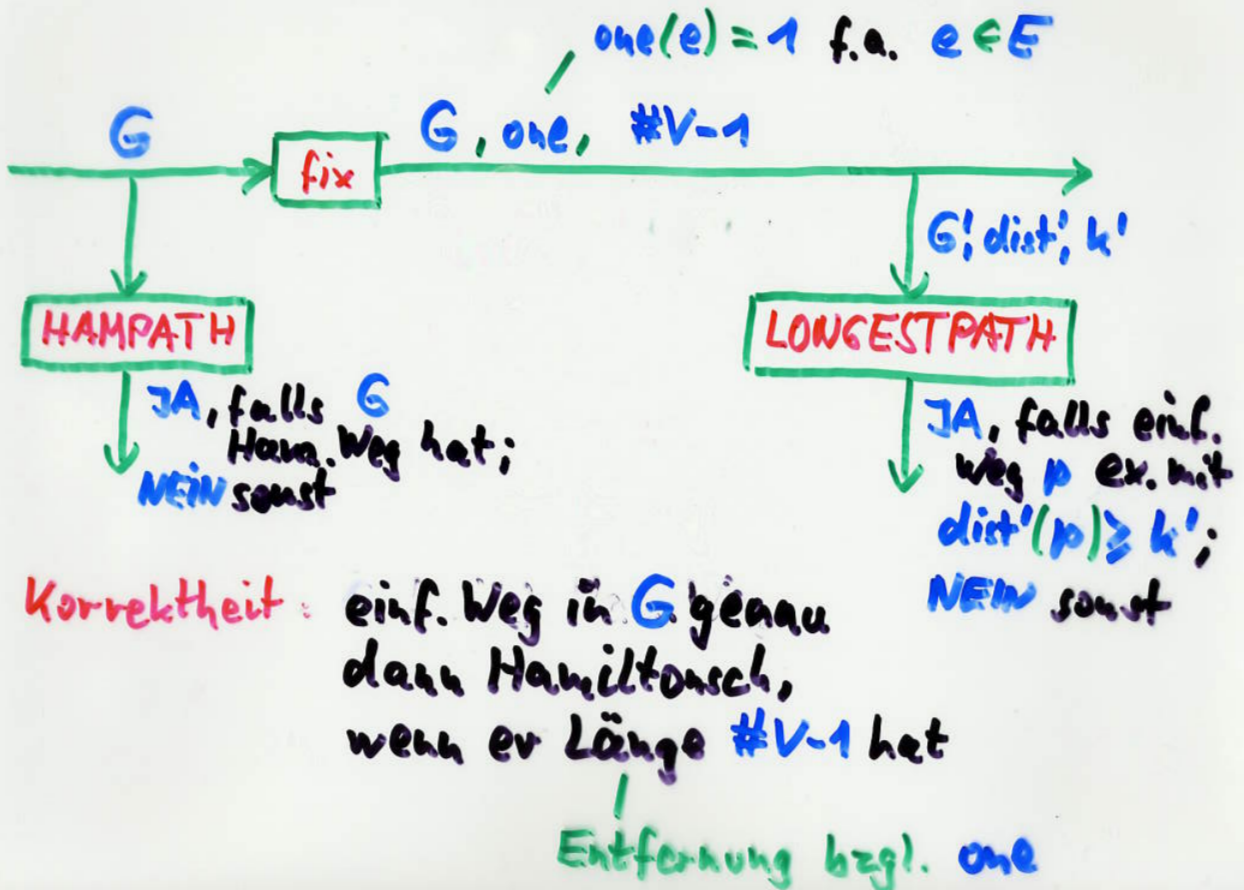 one(e) = 1 f.a. e ∈ E
G
G, one, #V-1
fix
G', dist', k'
HAMPATH
LONGESTPATH
JA, falls G
Ham. Weg hat;
NEIN sonst
JA, falls einf.
Weg p ex. mit
dist'(p) ≥ k';
NEIN sonst
Korrektheit: einf. Weg in G genau
dann Hamiltonsch,
wenn er Länge #V-1 hat
Entfernung bzgl. one